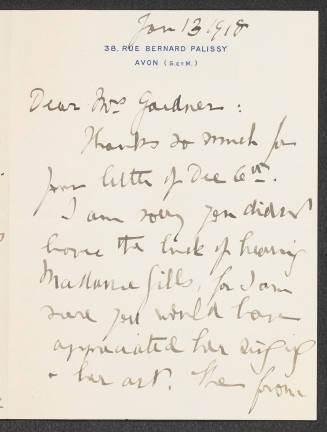 Jan 13 1918
38. RUE BERNARD PALISSY
AVON (S. ET M.)
Dear Mrs Gardner:
Thanks so much for
your letter of Dec 6th.
I am sorry you didn't
have the luck of hearing
Madame Gills, for I am
sure you would have
appreciated her singing
& her art. The